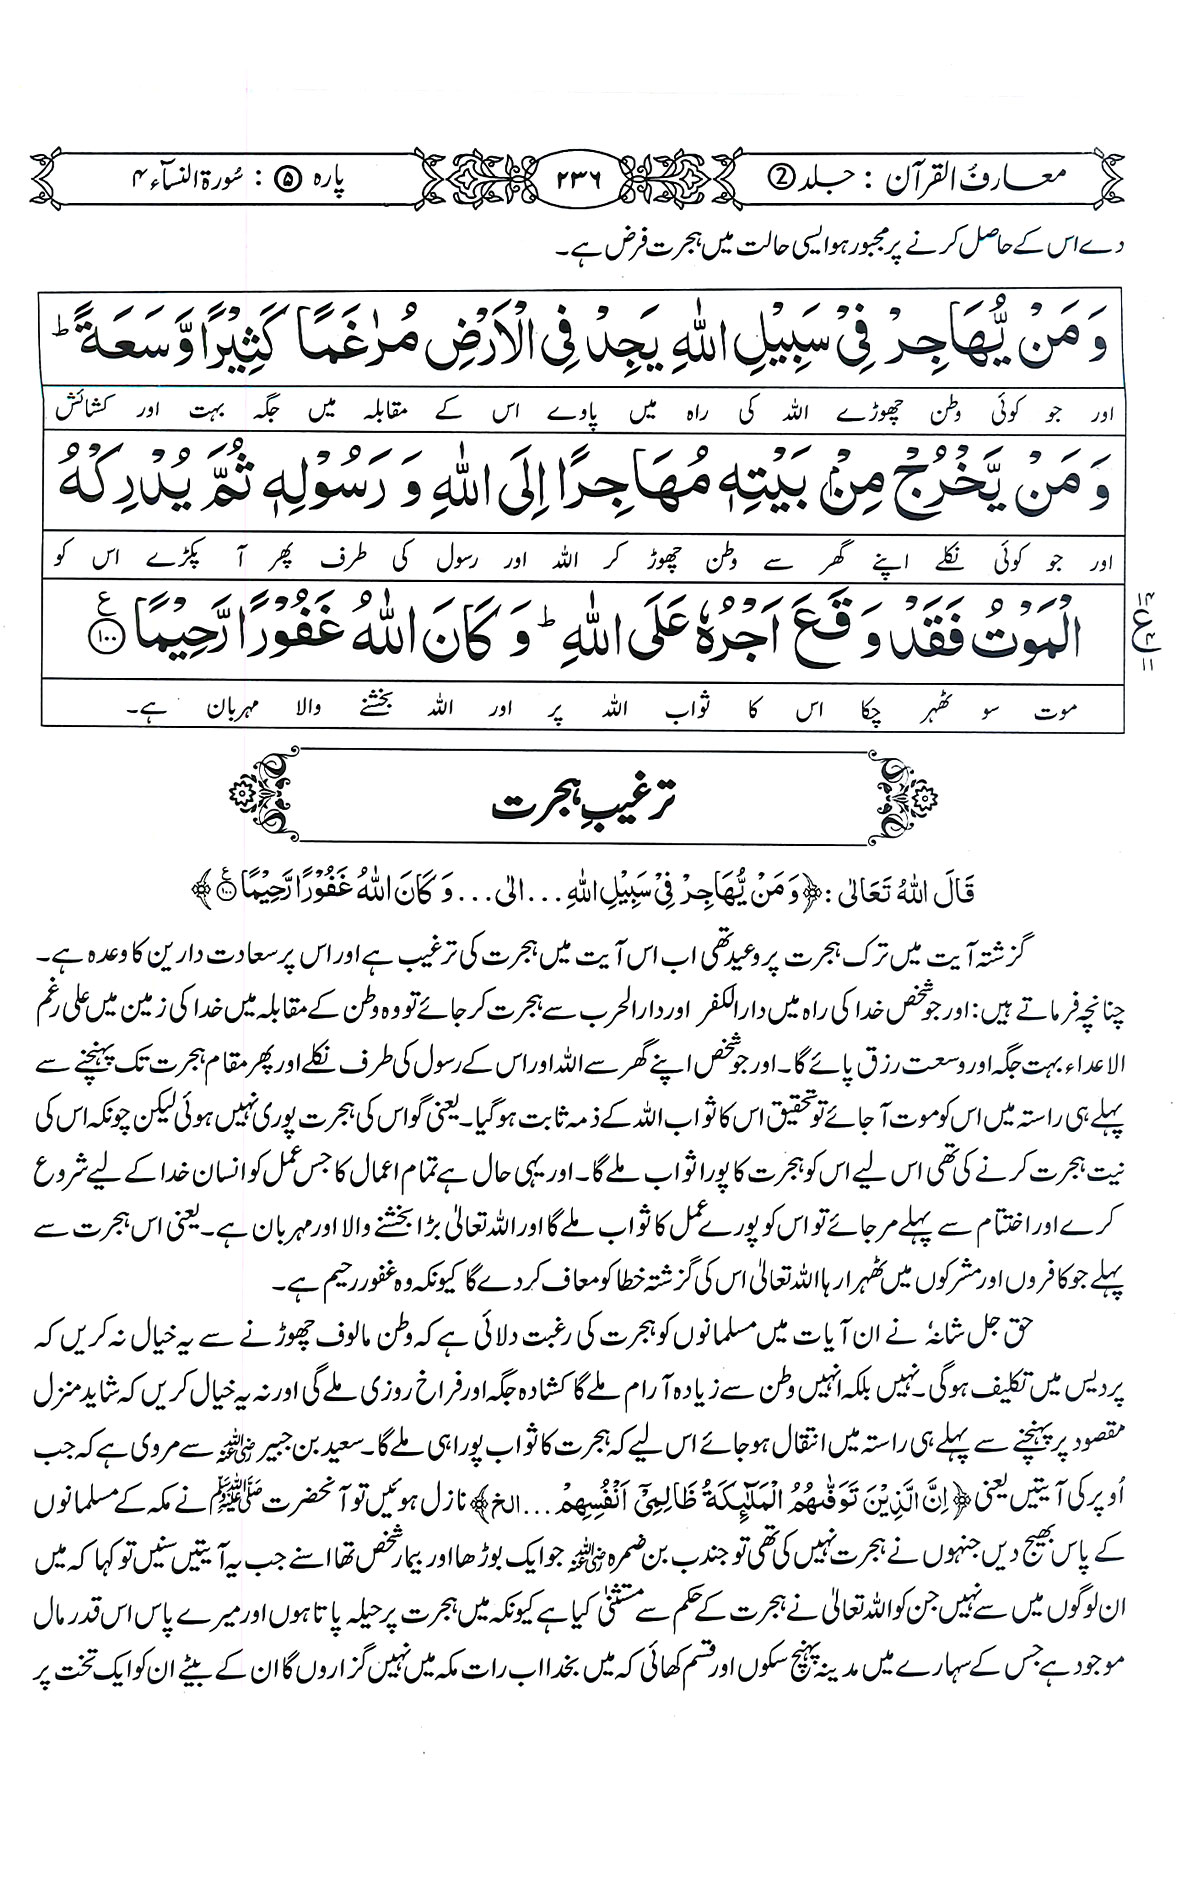 معارف القرآن : جلد ②
۲۳۶
پارہ ⑤ : سُورۃ النسآء ۴
دے اس کے حاصل کرنے پر مجبور ہو ایسی حالت میں ہجرت فرض ہے۔
وَ مَنْ یُّهَاجِرْ فِیْ سَبِیْلِ اللّٰهِ یَجِدْ فِی الْاَرْضِ مُرٰغَمًا كَثِیْرًا وَّ سَعَةً ؕ
اور جو کوئی وطن چھوڑے اللہ کی راہ میں پاوے اس کے مقابلہ میں جگہ بہت اور کشائش
وَ مَنْ یَّخْرُجْ مِنْۢ بَیْتِهٖ مُهَاجِرًا اِلَی اللّٰهِ وَ رَسُوْلِهٖ ثُمَّ یُدْرِكْهُ
اور جو کوئی نکلے اپنے گھر سے وطن چھوڑ کر اللہ اور رسول کی طرف پھر آ پکڑے اس کو
الْمَوْتُ فَقَدْ وَقَعَ اَجْرُهٗ عَلَی اللّٰهِ ؕ وَ كَانَ اللّٰهُ غَفُوْرًا رَّحِیْمًا ۧ﴿۱۰۰﴾
۱۴
ع
۴
۱۱
موت سو ٹھہر چکا اس کا ثواب اللہ پر اور اللہ بخشنے والا مہربان ہے۔
ترغیبِ ہجرت
قَالَ اللّٰهُ تَعَالٰی : ﴿وَ مَنْ یُّهَاجِرْ فِیْ سَبِیْلِ اللّٰهِ ... الٰی ... وَ كَانَ اللّٰهُ غَفُوْرًا رَّحِیْمًا ۧ۱۰۰﴾
گزشتہ آیت میں ترک ہجرت پر وعید تھی اب اس آیت میں ہجرت کی ترغیب ہے اور اس پر سعادت دارین کا وعدہ ہے۔
چنانچہ فرماتے ہیں: اور جو شخص خدا کی راہ میں دارالکفر اور دارالحرب سے ہجرت کر جائے تو وہ وطن کے مقابلہ میں خدا کی زمین میں علی رغم
الاعداء بہت جگہ اور وسعت رزق پائے گا۔ اور جو شخص اپنے گھر سے اللہ اور اس کے رسول کی طرف نکلے اور پھر مقام ہجرت تک پہنچنے سے
پہلے ہی راستہ میں اس کو موت آ جائے تو تحقیق اس کا ثواب اللہ کے ذمہ ثابت ہو گیا۔ یعنی گو اس کی ہجرت پوری نہیں ہوئی لیکن چونکہ اس کی
نیت ہجرت کرنے کی تھی اس لیے اس کو ہجرت کا پورا ثواب ملے گا۔ اور یہی حال ہے تمام اعمال کا جس عمل کو انسان خدا کے لیے شروع
کرے اور اختتام سے پہلے مر جائے تو اس کو پورے عمل کا ثواب ملے گا اور اللہ تعالیٰ بڑا بخشنے والا اور مہربان ہے۔ یعنی اس ہجرت سے
پہلے جو کافروں اور مشرکوں میں ٹھہرا رہا اللہ تعالیٰ اس کی گزشتہ خطا کو معاف کر دے گا کیونکہ وہ غفور رحیم ہے۔
حق جل شانہٗ نے ان آیات میں مسلمانوں کو ہجرت کی رغبت دلائی ہے کہ وطن مالوف چھوڑنے سے یہ خیال نہ کریں کہ
پردیس میں تکلیف ہوگی۔ نہیں بلکہ انہیں وطن سے زیادہ آرام ملے گا کشادہ جگہ اور فراخ روزی ملے گی اور نہ یہ خیال کریں کہ شاید منزل
مقصود پر پہنچنے سے پہلے ہی راستہ میں انتقال ہو جائے اس لیے کہ ہجرت کا ثواب پورا ہی ملے گا۔ سعید بن جبیر رضی اللہ عنہ سے مروی ہے کہ جب
اُوپر کی آیتیں یعنی ﴿اِنَّ الَّذِیْنَ تَوَفّٰىهُمُ الْمَلٰٓىِٕكَةُ ظَالِمِیْۤ اَنْفُسِهِمْ ... الخ﴾ نازل ہوئیں تو آنحضرت ﷺ نے مکہ کے مسلمانوں
کے پاس بھیج دیں جنہوں نے ہجرت نہیں کی تھی تو جندب بن ضمرہ رضی اللہ عنہ جو ایک بوڑھا اور بیمار شخص تھا اسنے جب یہ آیتیں سنیں تو کہا کہ میں
ان لوگوں میں سے نہیں جن کو اللہ تعالیٰ نے ہجرت کے حکم سے مستثنیٰ کیا ہے کیونکہ میں ہجرت پر حیلہ پاتا ہوں اور میرے پاس اس قدر مال
موجود ہے جس کے سہارے میں مدینہ پہنچ سکوں اور قسم کھائی کہ میں بخدا اب رات مکہ میں نہیں گزاروں گا ان کے بیٹے ان کو ایک تخت پر